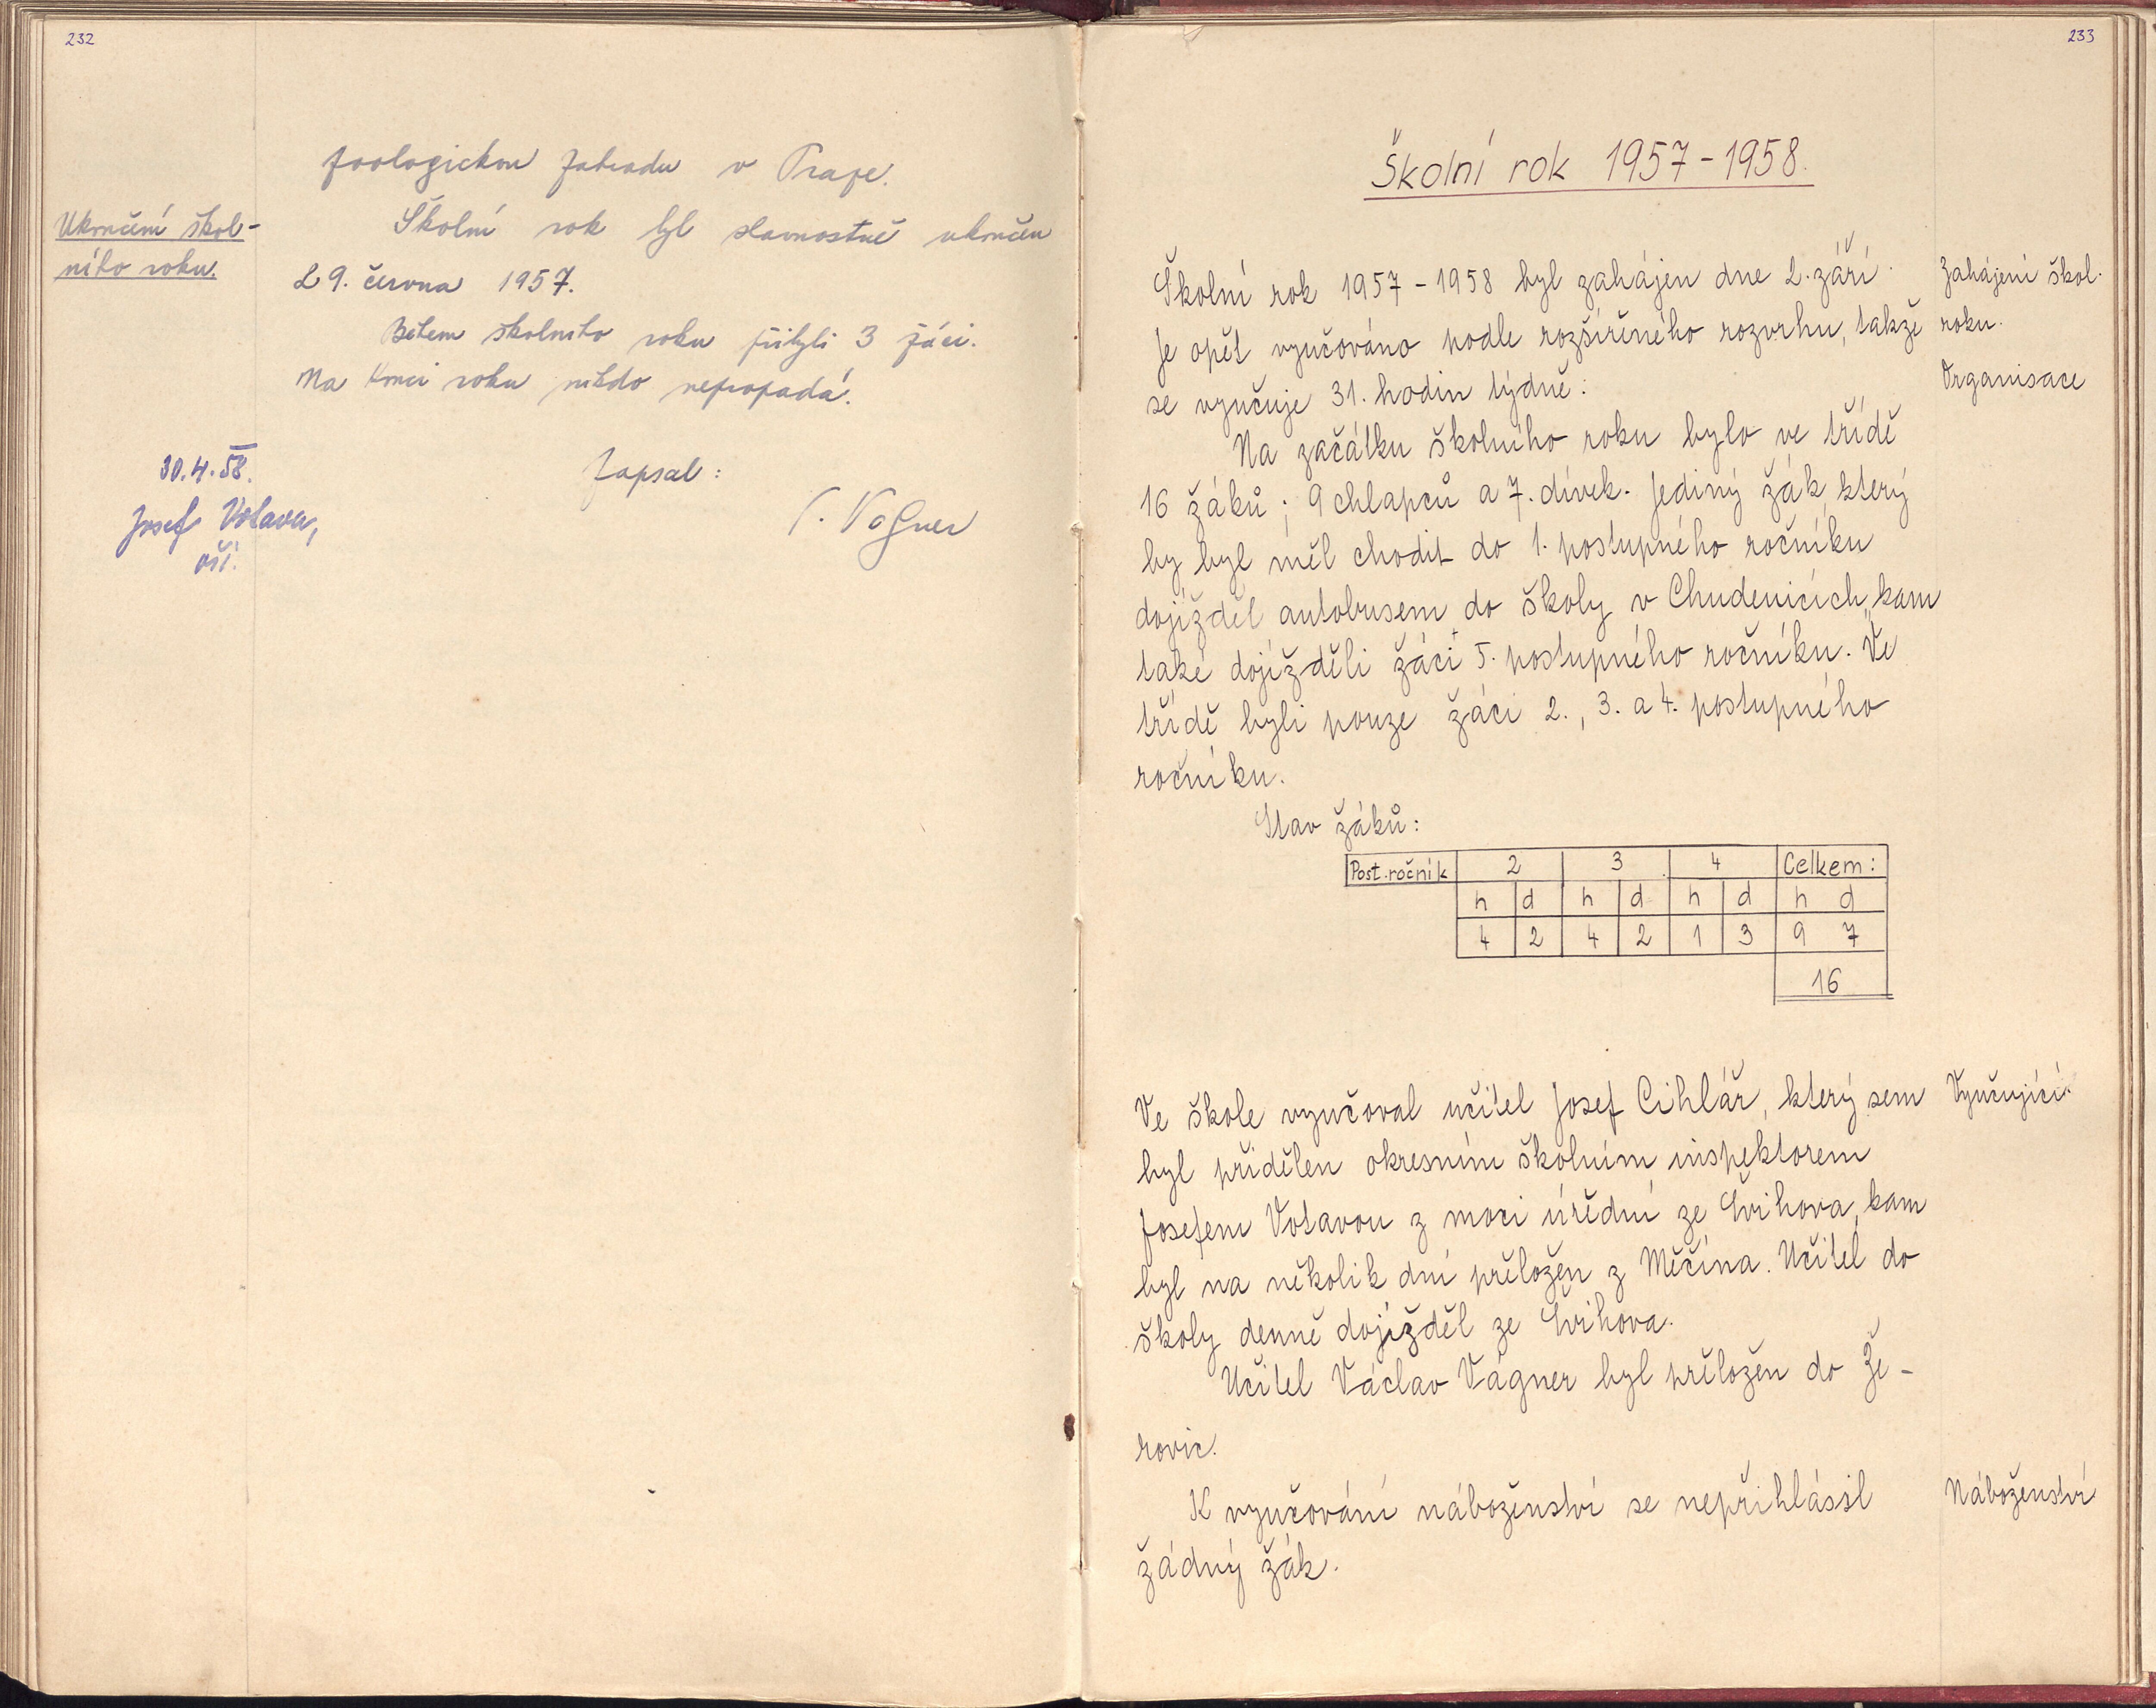 232
zoologickou zahradu v Praze.
Ukončení škol-
ního roku.
Školní rok byl slavnostně ukončen
29. června 1957.
Během školního roku přibyli 3 žáci.
Na konci roku nikdo nepropadá.
30.4.58.
Josef Votava,
oši.
Zapsal:
V. Vágner
233
Školní rok 1957-1958.
Školní rok 1957-1958 byl zahájen dne 2. září.
Zahájení škol.
je opět vyučováno podle rozšířeného rozvrhu, takže
roku.
se vyučuje 31. hodin týdně:
Organisace
Na začátku školního roku bylo ve třídě
16 žáků; 9 chlapců a 7. dívek. Jediný žák, který
by byl měl chodit do 1. postupného ročníku
dojížděl autobusem do školy v Chudenicích, kam
také dojížděli žáci 5. postupného ročníku. Ve
třídě byli pouze žáci 2., 3. a 4. postupného
ročníku.
Stav žáků:
Post.ročník 2 3 4 Celkem:
h d h d h d h d
4 2 4 2 1 3 9 7
16
Ve škole vyučoval učitel Josef Cihlář, který sem
Vyučující.
byl přidělen okresním školním inspektorem
Josefem Votavou z moci úřední ze Švihova, kam
byl na několik dní přeložen z Měčína. Učitel do
školy denně dojížděl ze Švihova.
Učitel Václav Vágner byl přeložen do Že-
rovic.
K vyučování náboženství se nepřihlásil
Náboženství
žádný žák.